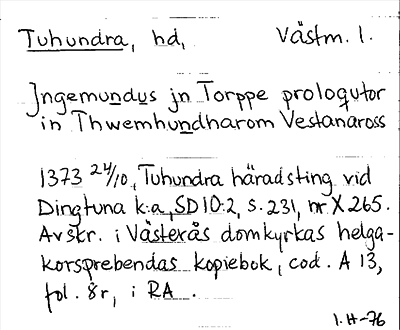 Tuhundra, hd, Västm. l.
Jngemundus jn Torppe proloqutor
in Thwemhundharom Vestanaross
1373 24/10, Tuhundra häradsting vid
Dingtuna k:a, SD 10:2, s. 231, nr X 265.
Avskr. i Västerås domkyrkas helga-
korsprebendas kopiebok, cod. A 13,
fol. 8r, i RA.
I.H-76